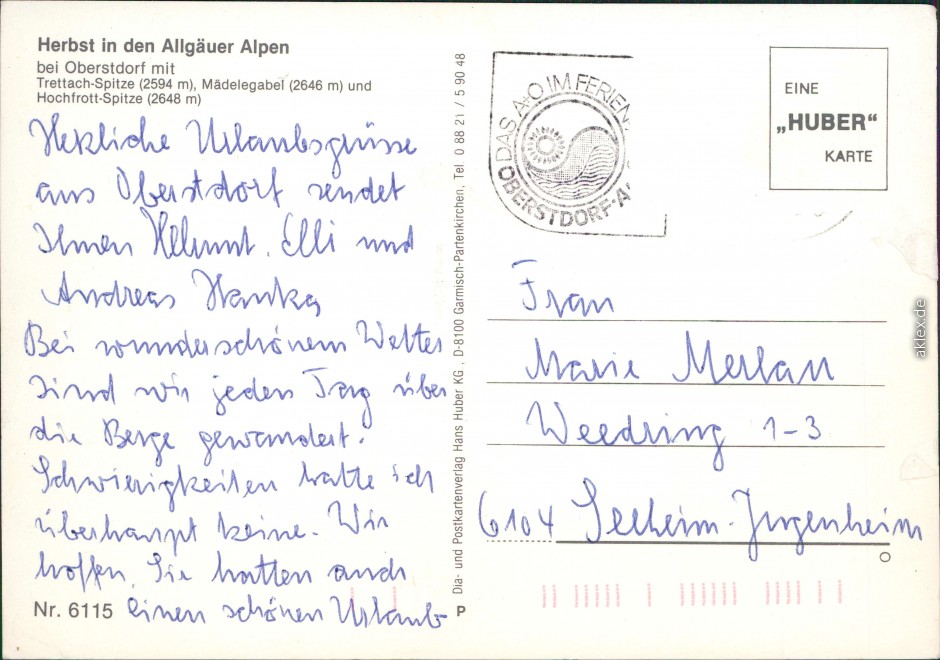 Herbst in den Allgäuer Alpen
bei Oberstdorf mit
Trettach-Spitze (2594 m), Mädelegabel (2646 m) und
Hochfrott-Spitze (2648 m)
Herzliche Urlaubsgrüsse
aus Oberstdorf sendet
Ihnen Helmut, Elli und
Andreas Hanka
Bei wunderschönem Wetter
sind wir jeden Tag über
die Berge gewandert.
Schwierigkeiten hatte ich
überhaupt keine. Wir
hoffen, Sie hatten auch
einen schönen Urlaub
Nr. 6115
P
Dia- und Postkartenverlag Hans Huber KG., D-8100 Garmisch-Partenkirchen, Tel. 0 88 21 / 5 90 48
DAS A-O IM FERIEN
OBERSTDORF-A
EINE
„HUBER“
KARTE
Frau
Marie
Weedring 1-3
6104 Seeheim-Jugenheim
aklex.de